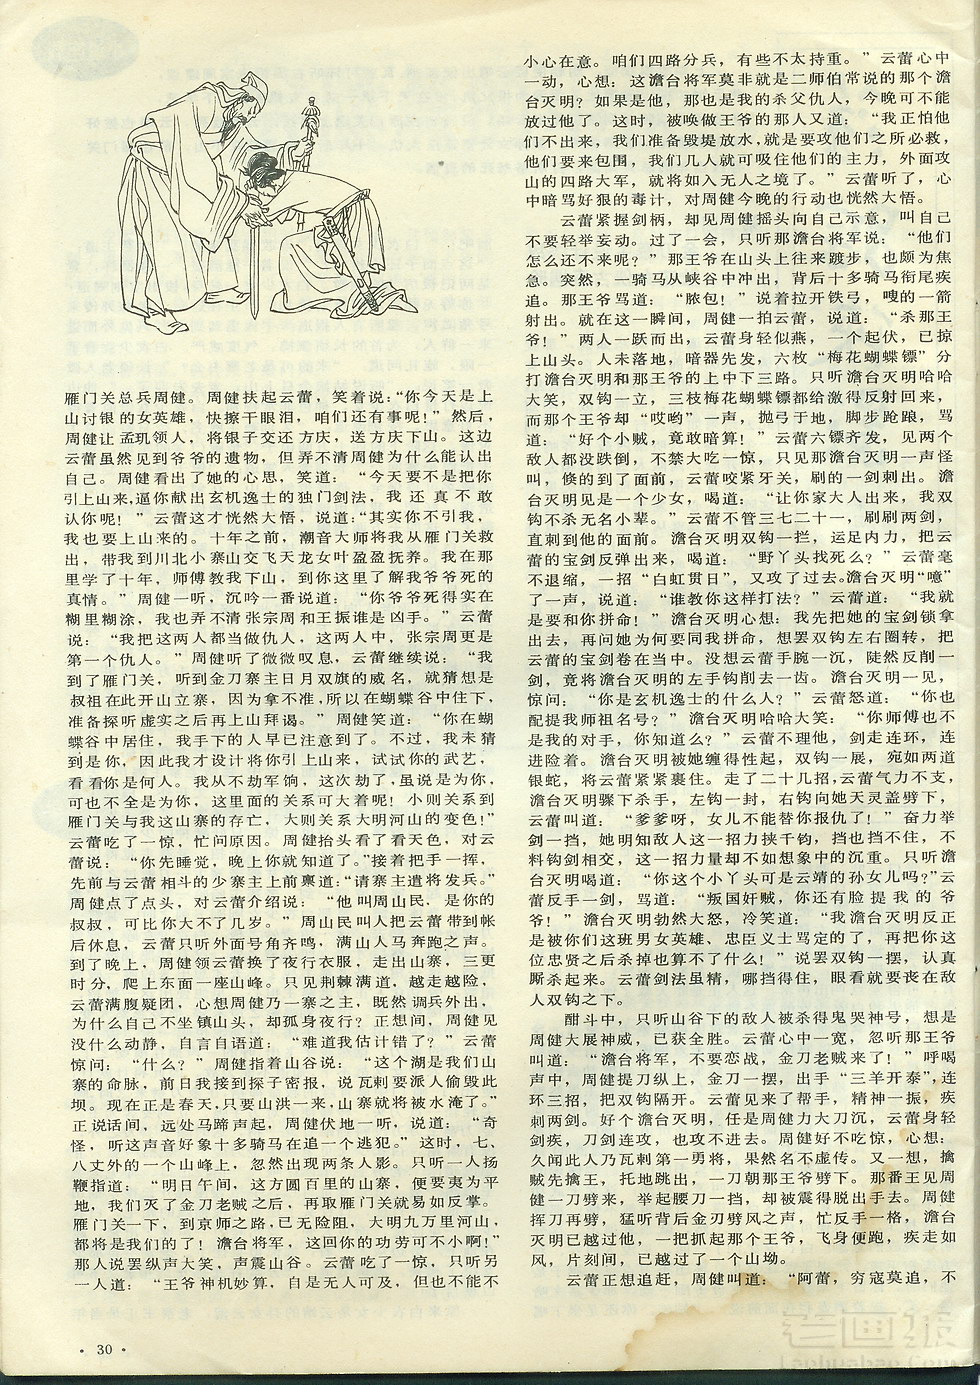 雁门关总兵周健。周健扶起云蕾，笑着说：“你今天是上
山讨银的女英雄，快擦干眼泪，咱们还有事呢！”然后，
周健让孟玑领人，将银子交还方庆，送方庆下山。这边
云蕾虽然见到爷爷的遗物，但弄不清周健为什么能认出
自己。周健看出了她的心思，笑道：“今天要不是把你
引上山来，逼你献出玄机逸士的独门剑法，我还真不敢
认你呢！”云蕾这才恍然大悟，说道：“其实你不引我，
我也要上山来的。十年之前，潮音大师将我从雁门关救
出，带我到川北小寨山交飞天龙女叶盈盈抚养。我在那
里学了十年，师傅教我下山，到你这里了解我爷爷死的
真情。”周健一听，沉吟一番说道：“你爷爷死得实在
糊里糊涂，我也弄不清张宗周和王振谁是凶手。”云蕾
说：“我把这两人都当做仇人，这两人中，张宗周更是
第一个仇人。”周健听了微微叹息，云蕾继续说：“我
到了雁门关，听到金刀寨主日月双旗的威名，就猜想是
叔祖在此开山立寨，因为拿不准，所以在蝴蝶谷中住下，
准备探听虚实之后再上山拜谒。”周健笑道：“你在蝴
蝶谷中居住，我手下的人早已注意到了。不过，我未猜
到是你，因此我才设计将你引上山来，试试你的武艺，
看看你是何人。我从不劫军饷，这次劫了，虽说是为你，
可也不全是为你，这里面的关系可大着呢！小则关系到
雁门关与我这山寨的存亡，大则关系大明河山的变色！”
云蕾吃了一惊，忙问原因。周健抬头看了看天色，对云
蕾说：“你先睡觉，晚上你就知道了。”接着把手一挥，
先前与云蕾相斗的少寨主上前禀道：“请寨主遣将发兵。”
周健点了点头，对云蕾介绍说：“他叫周山民，是你的
叔叔，可比你大不了几岁。”周山民叫人把云蕾带到帐
后休息，云蕾只听外面号角齐鸣，满山人马奔跑之声。
到了晚上，周健领云蕾换了夜行衣服，走出山寨，三更
时分，爬上东面一座山峰。只见荆棘满道，越走越险，
云蕾满腹疑团，心想周健乃一寨之主，既然调兵外出，
为什么自己不坐镇山头，却孤身夜行？正想间，周健见
没什么动静，自言自语道：“难道我估计错了？”云蕾
惊问：“什么？”周健指着山谷说：“这个湖是我们山
寨的命脉，前日我接到探子密报，说瓦剌要派人偷毁此
坝。现在正是春天，只要山洪一来，山寨就将被水淹了。”
正说话间，远处马蹄声起，周健伏地一听，说道：“奇
怪，听这声音好象十多骑马在追一个逃犯。”这时，七、
八丈外的一个山峰上，忽然出现两条人影。只听一人扬
鞭指道：“明日午间，这方圆百里的山寨，便要夷为平
地，我们灭了金刀老贼之后，再取雁门关就易如反掌。
雁门关一下，到京师之路，已无险阻，大明九万里河山，
都将是我们的了！澹台将军，这回你的功劳可不小啊！”
那人说罢纵声大笑，声震山谷。云蕾吃了一惊，只听另
一人道：“王爷神机妙算，自是无人可及，但也不能不
小心在意。咱们四路分兵，有些不太持重。”云蕾心中
一动，心想：这澹台将军莫非就是二师伯常说的那个澹
台灭明？如果是他，那也是我的杀父仇人，今晚可不能
放过他了。这时，被唤做王爷的那人又道：“我正怕他
们不出来，我们准备毁堤放水，就是要攻他们之所必救，
他们要来包围，我们几人就可吸住他们的主力，外面攻
山的四路大军，就将如入无人之境了。”云蕾听了，心
中暗骂好狠的毒计，对周健今晚的行动也恍然大悟。
云蕾紧握剑柄，却见周健摇头向自己示意，叫自己
不要轻举妄动。过了一会，只听那澹台将军说：“他们
怎么还不来呢？”那王爷在山头上往来踱步，也颇为焦
急。突然，一骑马从峡谷中冲出，背后十多骑马衔尾疾
追。那王爷骂道：“脓包！”说着拉开铁弓，嗖的一箭
射出。就在这一瞬间，周健一拍云蕾，说道：“杀那王
爷！”两人一跃而出，云蕾身轻似燕，一个起伏，已掠
上山头。人未落地，暗器先发，六枚“梅花蝴蝶镖”分
打澹台灭明和那王爷的上中下三路。只听澹台灭明哈哈
大笑，双钩一立，三枝梅花蝴蝶镖都给激得反射回来，
而那个王爷却“哎哟”一声，抛弓于地，脚步跄踉，骂
道：“好个小贼，竟敢暗算！”云蕾六镖齐发，见两个
敌人都没跌倒，不禁大吃一惊，只见那澹台灭明一声怪
叫，倏的到了面前，云蕾咬紧牙关，刷的一剑刺出。澹
台灭明见是一个少女，喝道：“让你家大人出来，我双
钩不杀无名小辈。”云蕾不管三七二十一，刷刷两剑，
直刺到他的面前。澹台灭明双钩一拦，运足内力，把云
蕾的宝剑反弹出来，喝道：“野丫头找死么？”云蕾毫
不退缩，一招“白虹贯日”，又攻了过去。澹台灭明“噫”
了一声，说道：“谁教你这样打法？”云蕾道：“我就
是要和你拼命！”澹台灭明心想：我先把她的宝剑锁拿
出去，再问她为何要同我拼命，想罢双钩左右圈转，把
云蕾的宝剑卷在当中。没想云蕾手腕一沉，陡然反削一
剑，竟将澹台灭明的左手钩削去一齿。澹台灭明一见，
惊问：“你是玄机逸士的什么人？”云蕾怒道：“你也
配提我师祖名号？”澹台灭明哈哈大笑：“你师傅也不
是我的对手，你知道么？”云蕾不理他，剑走连环，连
进险着。澹台灭明被她缠得性起，双钩一展，宛如两道
银蛇，将云蕾紧紧裹住。走了二十几招，云蕾气力不支，
澹台灭明骤下杀手，左钩一封，右钩向她天灵盖劈下，
云蕾叫道：“爹爹呀，女儿不能替你报仇了！”奋力举
剑一挡，她明知敌人这一招力挟千钧，挡也挡不住，不
料钩剑相交，这一招力量却不如想象中的沉重。只听澹
台灭明喝道：“你这个小丫头可是云靖的孙女儿吗？”云
蕾反手一剑，骂道：“叛国奸贼，你还有脸提我的爷
爷！”澹台灭明勃然大怒，冷笑道：“我澹台灭明反正
是被你们这班男女英雄、忠臣义士骂定的了，再把你这
位忠贤之后杀掉也算不了什么！”说罢双钩一摆，认真
厮杀起来。云蕾剑法虽精，哪挡得住，眼看就要丧在敌
人双钩之下。
酣斗中，只听山谷下的敌人被杀得鬼哭神号，想是
周健大展神威，已获全胜。云蕾心中一宽，忽听那王爷
叫道：“澹台将军，不要恋战，金刀老贼来了！”呼喝
声中，周健提刀纵上，金刀一摆，出手“三羊开泰”，连
环三招，把双钩隔开。云蕾见来了帮手，精神一振，疾
刺两剑。好个澹台灭明，任是周健力大刀沉，云蕾身轻
剑疾，刀剑连攻，也攻不进去。周健好不吃惊，心想：
久闻此人乃瓦剌第一勇将，果然名不虚传。又一想，擒
贼先擒王，托地跳出，一刀朝那王爷劈下。那番王见周
健一刀劈来，举起腰刀一挡，却被震得脱出手去。周健
挥刀再劈，猛听背后金刃劈风之声，忙反手一格，澹台
灭明已越过他，一把抓起那个王爷，飞身便跑，疾走如
风，片刻间，已越过了一个山坳。
云蕾正想追赶，周健叫道：“阿蕾，穷寇莫追，不
· 30 ·
老画报